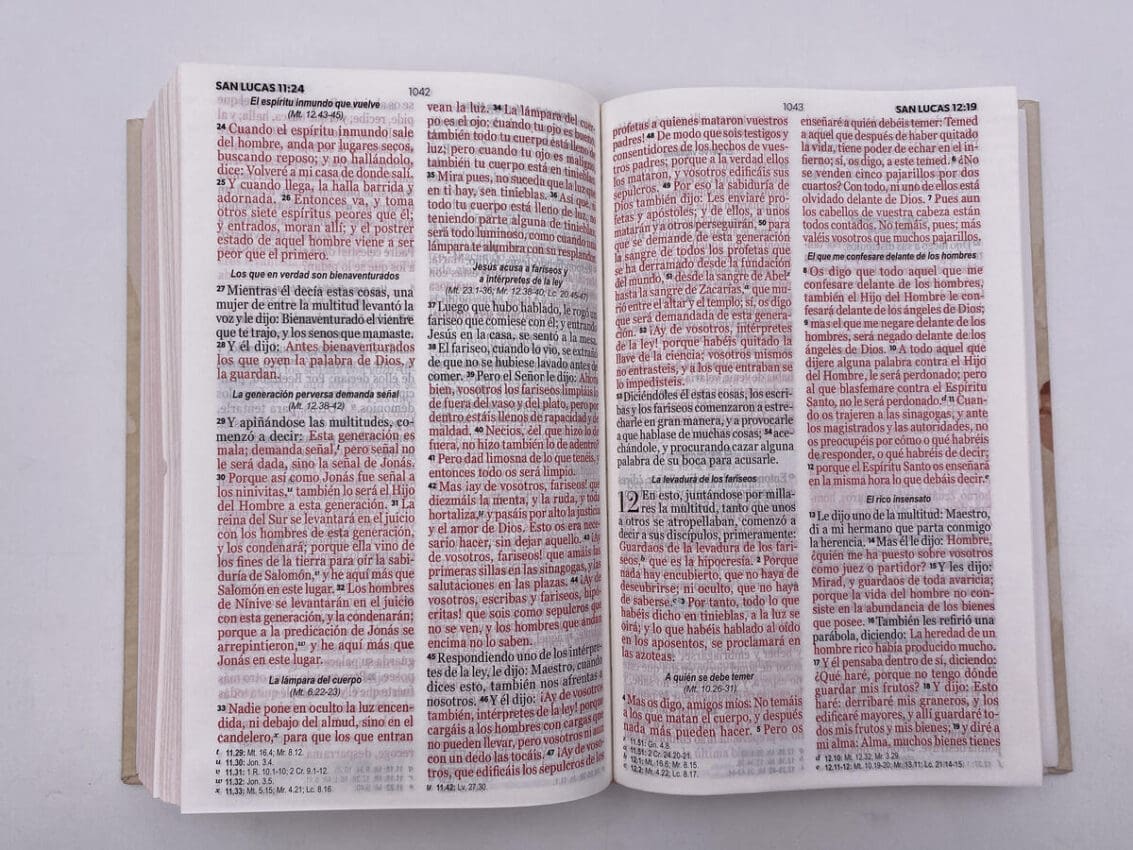 SAN LUCAS 11:24
1042
El espíritu inmundo que vuelve
(Mt. 12.43-45)
24 Cuando el espíritu inmundo sale
del hombre, anda por lugares secos,
buscando reposo; y no hallándolo,
dice: Volveré a mi casa de donde salí.
25 Y cuando llega, la halla barrida y
adornada. 26 Entonces va, y toma
otros siete espíritus peores que él;
y entrados, moran allí; y el postrer
estado de aquel hombre viene a ser
peor que el primero.
Los que en verdad son bienaventurados
27 Mientras él decía estas cosas, una
mujer de entre la multitud levantó la
voz y le dijo: Bienaventurado el vientre
que te trajo, y los senos que mamaste.
28 Y él dijo: Antes bienaventurados
los que oyen la palabra de Dios, y
la guardan.
La generación perversa demanda señal
(Mt. 12.38-42)
29 Y apiñándose las multitudes, co-
menzó a decir: Esta generación es
mala; demanda señal, pero señal no
le será dada, sino la señal de Jonás.
30 Porque así como Jonás fue señal a
los ninivitas, también lo será el Hijo
del Hombre a esta generación. 31 La
reina del Sur se levantará en el juicio
con los hombres de esta generación,
y los condenará; porque ella vino de
los fines de la tierra para oír la sabi-
duría de Salomón, y he aquí más que
Salomón en este lugar. 32 Los hombres
de Nínive se levantarán en el juicio
con esta generación, y la condenarán;
porque a la predicación de Jonás se
arrepintieron, y he aquí más que
Jonás en este lugar.
La lámpara del cuerpo
(Mt. 6.22-23)
33 Nadie pone en oculto la luz encen-
dida, ni debajo del almud, sino en el
candelero, para que los que entran
t 11.29: Mt. 16.4; Mr. 8.12.
u 11.30: Jon. 3.4.
v 11.31: 1 R. 10.1-10; 2 Cr. 9.1-12.
w 11.32: Jon. 3.5.
x 11.33; Mt. 5.15; Mr. 4.21; Lc. 8.16.
vean la luz. 34 La lámpara del cuer-
po es el ojo; cuando tu ojo es bueno,
también todo tu cuerpo está lleno de
luz; pero cuando tu ojo es maligno,
también tu cuerpo está en tinieblas.
35 Mira pues, no suceda que la luz que
en ti hay, sea tinieblas. 36 Así que, si
todo tu cuerpo está lleno de luz, no
teniendo parte alguna de tinieblas,
será todo luminoso, como cuando una
lámpara te alumbra con su resplandor.
Jesús acusa a fariseos y
a intérpretes de la ley
(Mt. 23.1-36; Mr. 12.38-40; Lc. 20.45-47)
37 Luego que hubo hablado, le rogó un
fariseo que comiese con él; y entrando
Jesús en la casa, se sentó a la mesa.
38 El fariseo, cuando lo vio, se extrañó
de que no se hubiese lavado antes de
comer. 39 Pero el Señor le dijo: Ahora
bien, vosotros los fariseos limpiáis lo
de fuera del vaso y del plato, pero por
dentro estáis llenos de rapacidad y de
maldad. 40 Necios, ¿el que hizo lo de
fuera, no hizo también lo de adentro?
41 Pero dad limosna de lo que tenéis, y
entonces todo os será limpio.
42 Mas ¡ay de vosotros, fariseos! que
diezmáis la menta, y la ruda, y toda
hortaliza, y pasáis por alto la justicia
y el amor de Dios. Esto os era nece-
sario hacer, sin dejar aquello. 43 ¡Ay
de vosotros, fariseos! que amáis las
primeras sillas en las sinagogas, y las
salutaciones en las plazas. 44 ¡Ay de
vosotros, escribas y fariseos, hipó-
critas! que sois como sepulcros que
no se ven, y los hombres que andan
encima no lo saben.
45 Respondiendo uno de los intérpre-
tes de la ley, le dijo: Maestro, cuando
dices esto, también nos afrentas a
nosotros. 46 Y él dijo: ¡Ay de vosotros
también, intérpretes de la ley! porque
cargáis a los hombres con cargas que
no pueden llevar, pero vosotros ni aun
con un dedo las tocáis. 47 ¡Ay de voso-
tros, que edificáis los sepulcros de los
y 11.42: Lv. 27.30.
1043
SAN LUCAS 12:19
profetas a quienes mataron vuestros
padres! 48 De modo que sois testigos y
consentidores de los hechos de vues-
tros padres; porque a la verdad ellos
los mataron, y vosotros edificáis sus
sepulcros. 49 Por eso la sabiduría de
Dios también dijo: Les enviaré pro-
fetas y apóstoles; y de ellos, a unos
matarán y a otros perseguirán, 50 para
que se demande de esta generación
la sangre de todos los profetas que
se ha derramado desde la fundación
del mundo, 51 desde la sangre de Abel
hasta la sangre de Zacarías, que mu-
rió entre el altar y el templo; sí, os digo
que será demandada de esta genera-
ción. 52 ¡Ay de vosotros, intérpretes
de la ley! porque habéis quitado la
llave de la ciencia; vosotros mismos
no entrasteis, y a los que entraban se
lo impedisteis.
53 Diciéndoles él estas cosas, los escri-
bas y los fariseos comenzaron a estre-
charle en gran manera, y a provocarle
a que hablase de muchas cosas; 54 ace-
chándole, y procurando cazar alguna
palabra de su boca para acusarle.
La levadura de los fariseos
12 En esto, juntándose por milla-
res la multitud, tanto que unos
a otros se atropellaban, comenzó a
decir a sus discípulos, primeramente:
Guardaos de la levadura de los fari-
seos, que es la hipocresía. 2 Porque
nada hay encubierto, que no haya de
descubrirse; ni oculto, que no haya
de saberse. 3 Por tanto, todo lo que
habéis dicho en tinieblas, a la luz se
oirá; y lo que habéis hablado al oído
en los aposentos, se proclamará en
las azoteas.
A quién se debe temer
(Mt. 10.26-31)
4 Mas os digo, amigos míos: No temáis
a los que matan el cuerpo, y después
nada más pueden hacer. 5 Pero os
z 11.51: Gn. 4.8.
a 11.51: 2 Cr. 24.20-21.
b 12.1: Mt. 16.6; Mr. 8.15.
c 12.2: Mr. 4.22; Lc. 8.17.
enseñaré a quién debéis temer: Temed
a aquel que después de haber quitado
la vida, tiene poder de echar en el in-
fierno; sí, os digo, a este temed. 6 ¿No
se venden cinco pajarillos por dos
cuartos? Con todo, ni uno de ellos está
olvidado delante de Dios. 7 Pues aun
los cabellos de vuestra cabeza están
todos contados. No temáis, pues; más
valéis vosotros que muchos pajarillos.
El que me confesare delante de los hombres
8 Os digo que todo aquel que me
confesare delante de los hombres,
también el Hijo del Hombre le con-
fesará delante de los ángeles de Dios;
9 mas el que me negare delante de los
hombres, será negado delante de los
ángeles de Dios. 10 A todo aquel que
dijere alguna palabra contra el Hijo
del Hombre, le será perdonado; pero
al que blasfemare contra el Espíritu
Santo, no le será perdonado.d 11 Cuan-
do os trajeren a las sinagogas, y ante
los magistrados y las autoridades, no
os preocupéis por cómo o qué habréis
de responder, o qué habréis de decir;
12 porque el Espíritu Santo os enseñará
en la misma hora lo que debáis decir.e
El rico insensato
13 Le dijo uno de la multitud: Maestro,
di a mi hermano que parta conmigo
la herencia. 14 Mas él le dijo: Hombre,
¿quién me ha puesto sobre vosotros
como juez o partidor? 15 Y les dijo:
Mirad, y guardaos de toda avaricia;
porque la vida del hombre no con-
siste en la abundancia de los bienes
que posee. 16 También les refirió una
parábola, diciendo: La heredad de un
hombre rico había producido mucho.
17 Y él pensaba dentro de sí, diciendo:
¿Qué haré, porque no tengo dónde
guardar mis frutos? 18 Y dijo: Esto
haré: derribaré mis graneros, y los
edificaré mayores, y allí guardaré to-
dos mis frutos y mis bienes; 19 y diré a
mi alma: Alma, muchos bienes tienes
d 12.10: Mt. 12.32; Mr. 3.29.
e 12.11-12: Mt. 10.19-20; Mr. 13.11; Lc. 21.14-15.